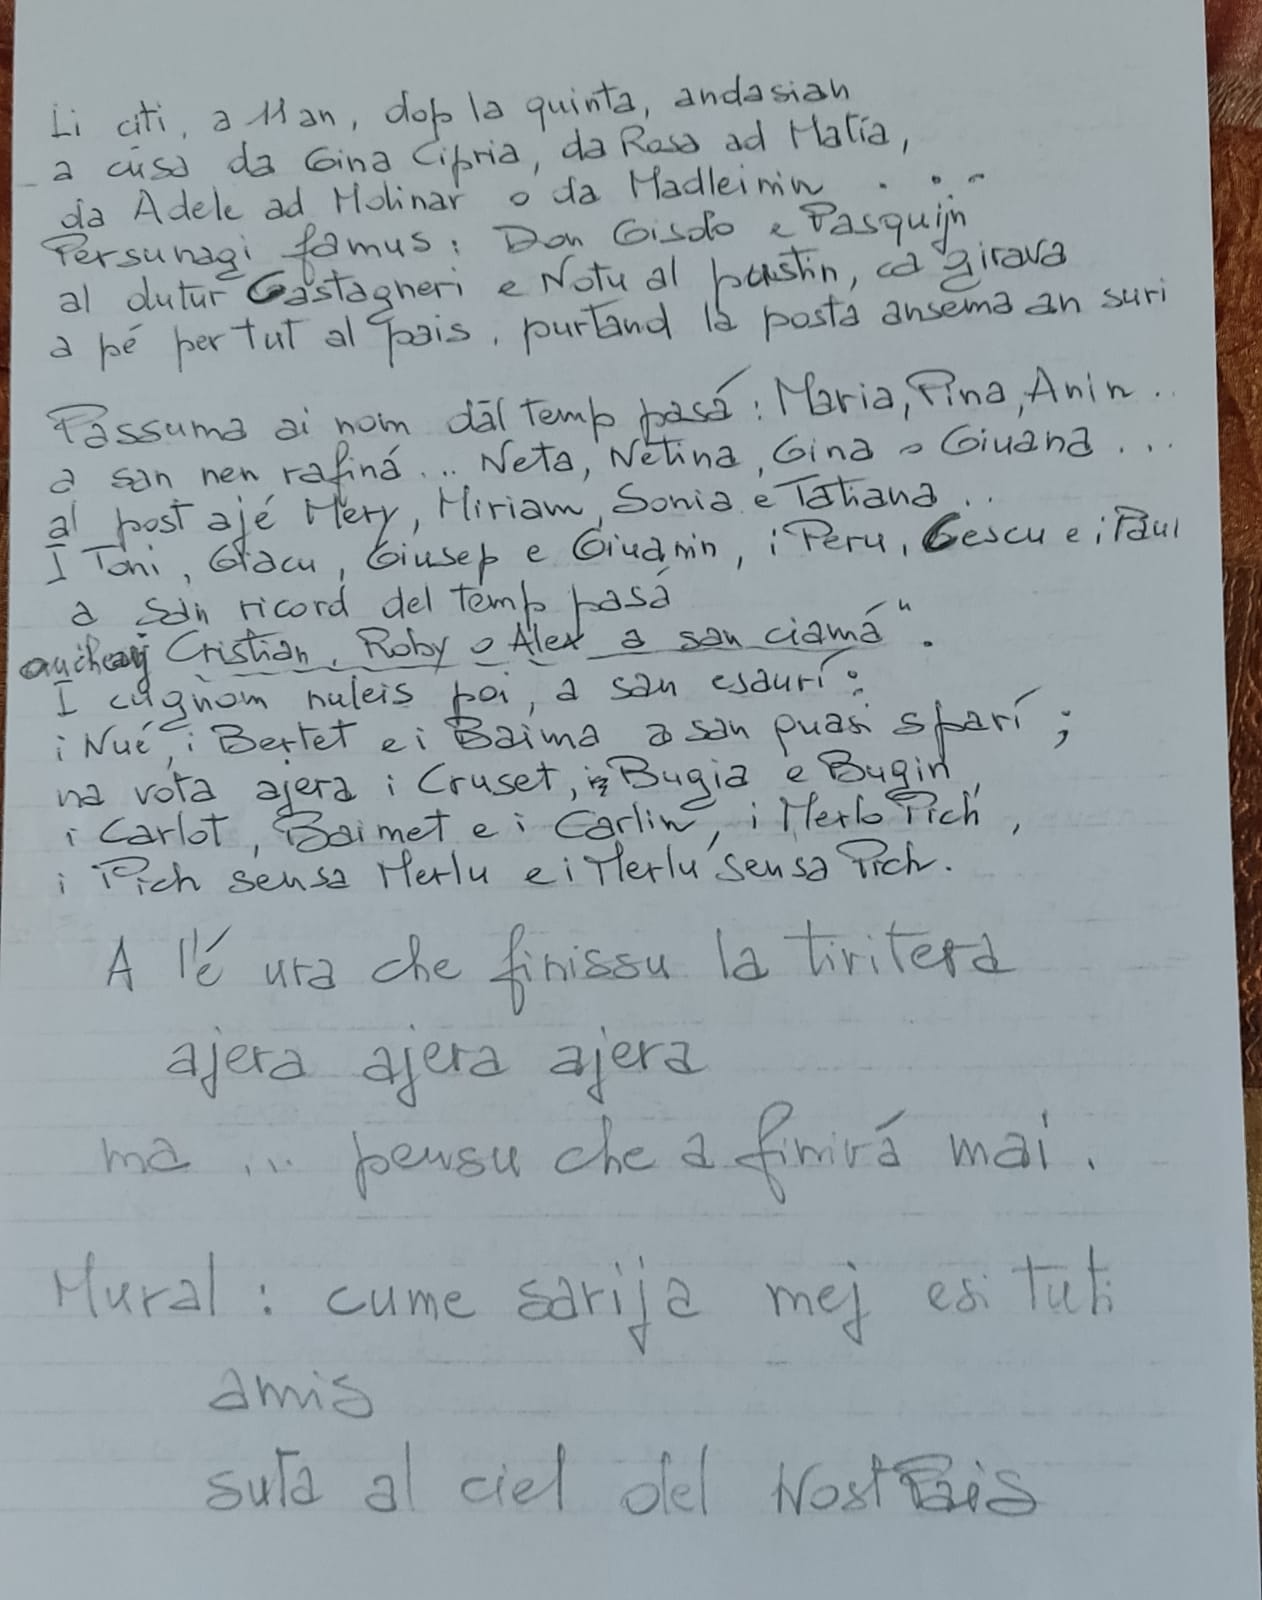 Li citi, a Man, dop la quinta, andasian
a cusa da Gina Cipria, da Rosa ad Matía,
da Adele ad Molinar o da Madleinin ...
Persunagi famus: Don Gisdo e Pasquijn
al dutur Castagneri e Notu al pustin, ca girava
a pé per tut al pais, purtand la posta ansema an suri
Passuma ai noim däl temp pasá: Maria, Pina, Anin..
a san nen rafiná... Neta, Netina, Gina o Giuana...
al post ajé Mery, Miriam, Sonia e Tatiana..
I Toni, Giacu, Giusep e Giuanin, i Peru, Gescu e i Paul
a san ricord del temp pasá
Cristian, Roby o Alex a san ciamá".
I cugnom nuleis poi, a san esaurí:
i Nué, i Bertet e i Baima a san quasi sparí;
na vota ajera i Cruset, i Bugia e Bugin,
i Carlot, Baimet e i Carlin, i Merlo Pich,
i Pich sensa Merlu e i Merlu sensa Pich.
A l'é ura che finissu la tiritera
ajera ajera ajera
ma ... pensu che a finirá mai.
Mural: cume sarija mej esi tuti
amis
suta al ciel del Nost Pais